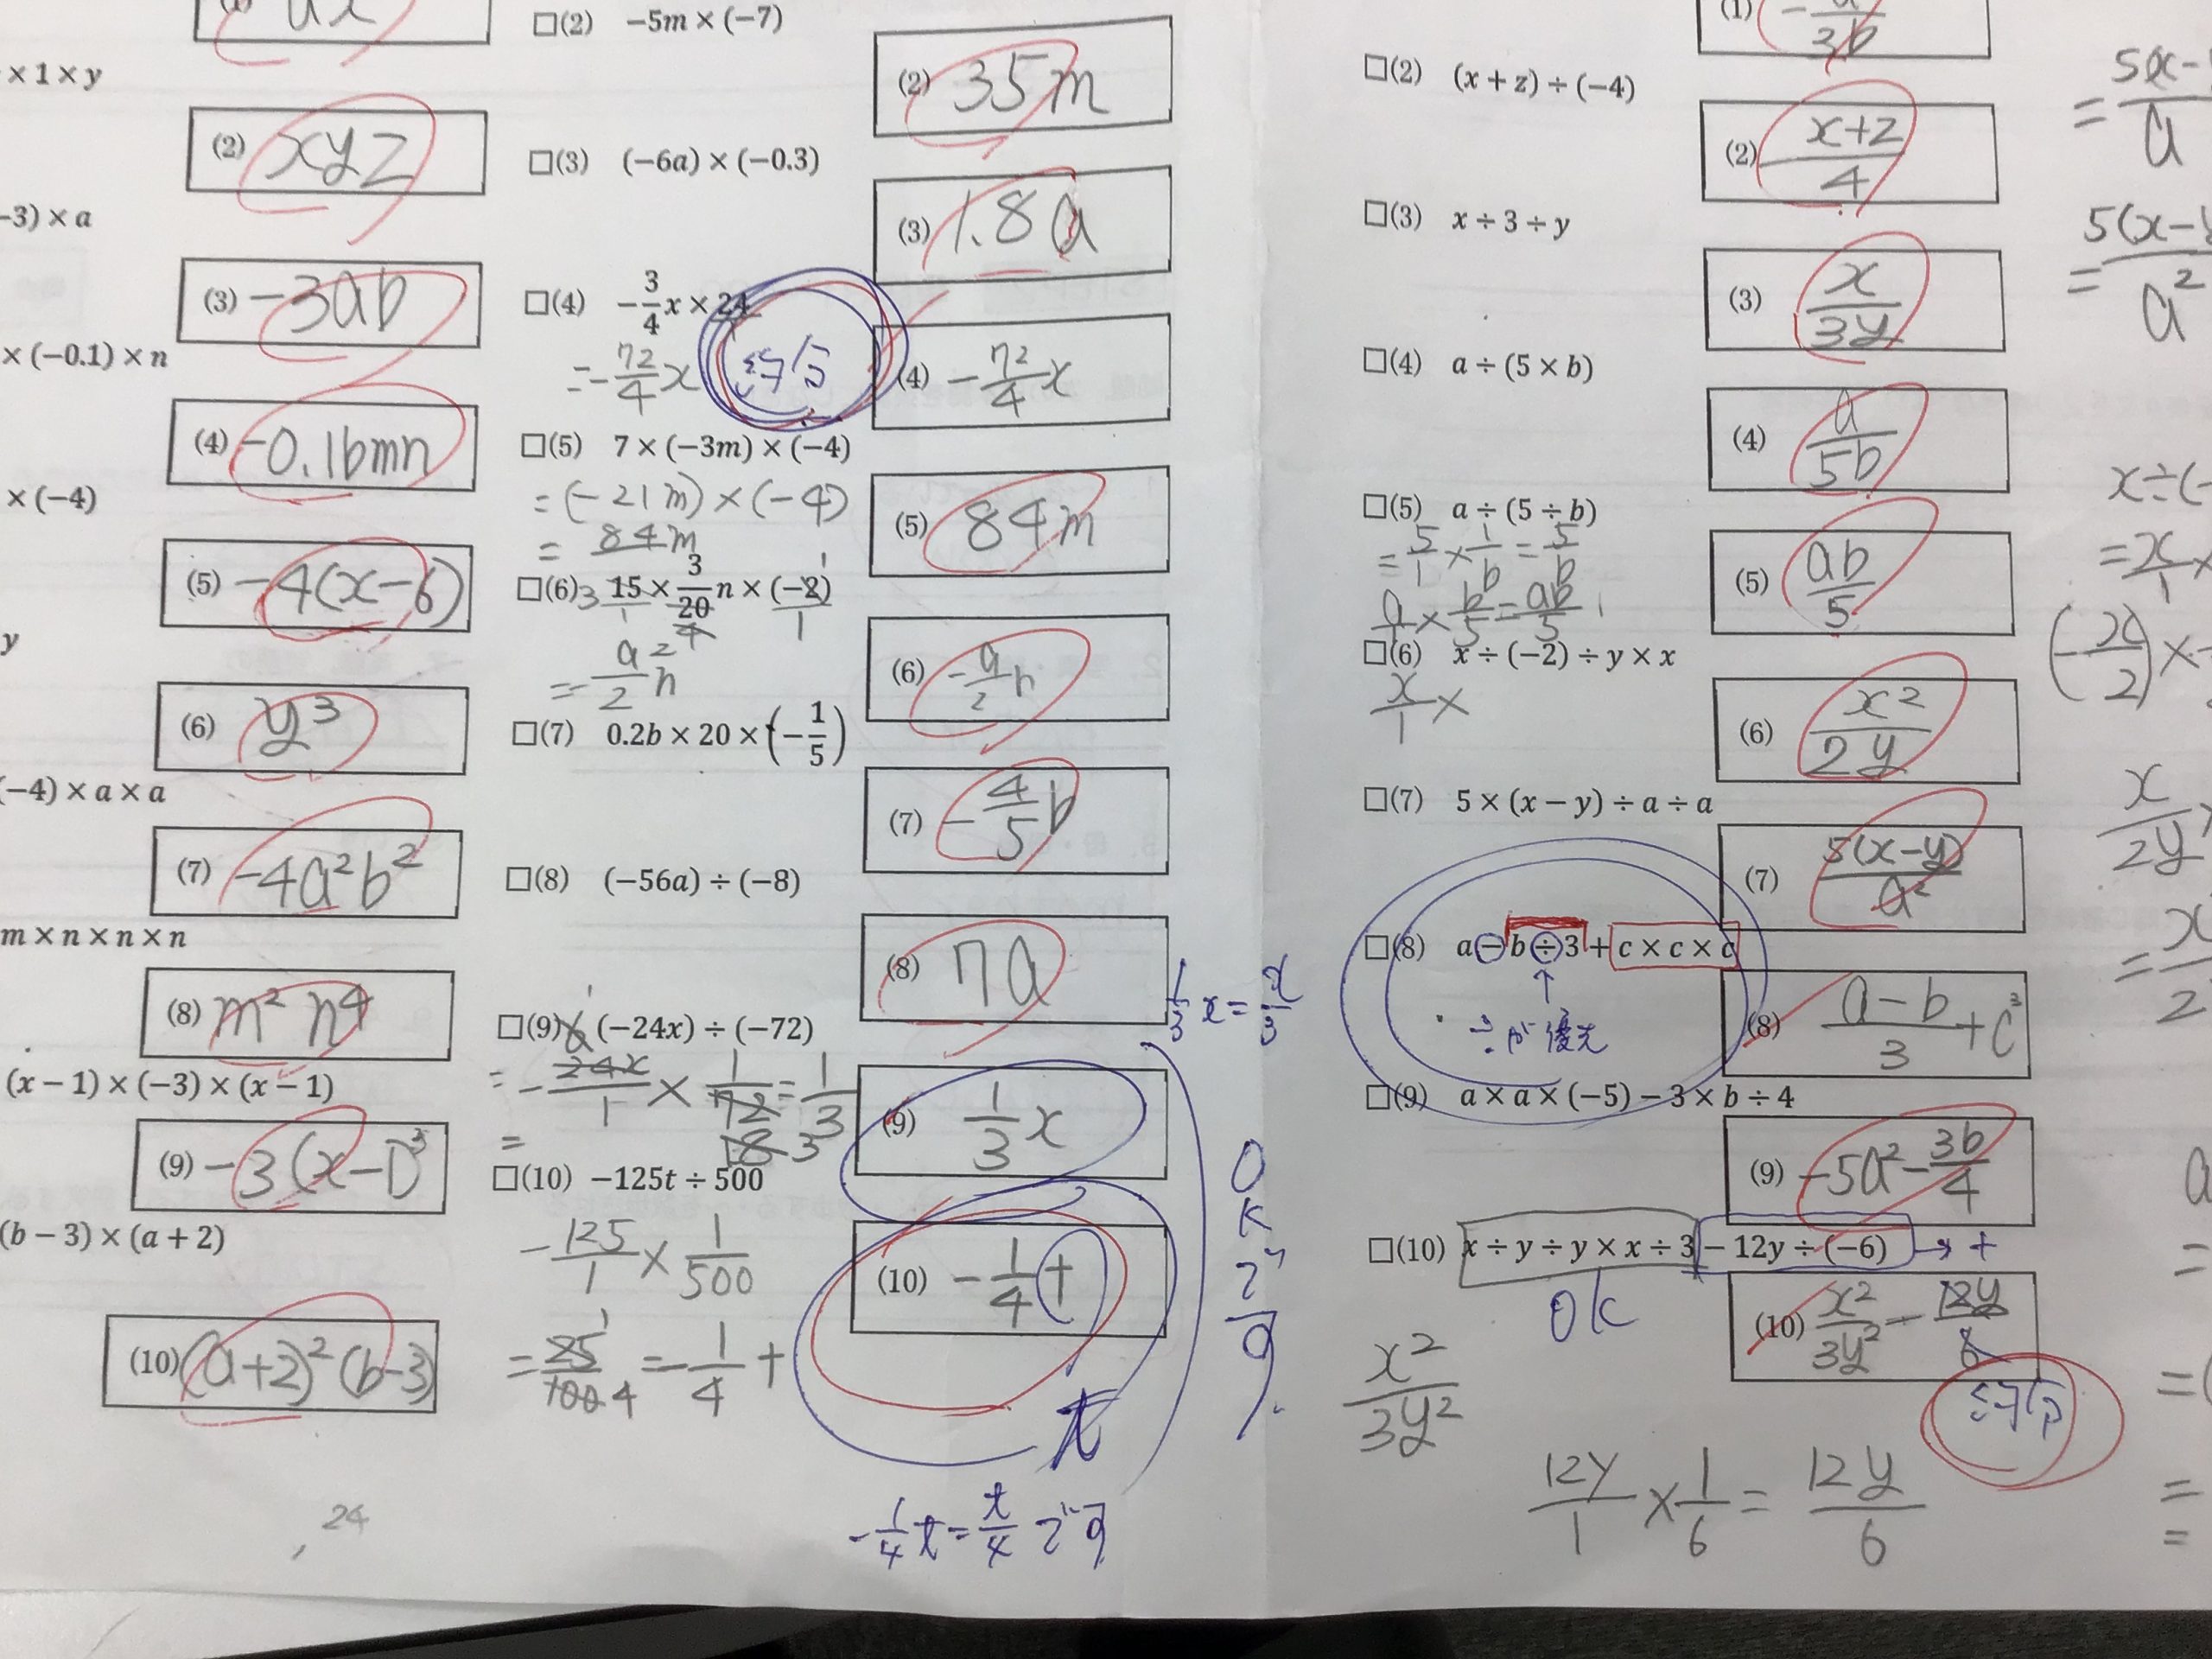 × 1 × y
(2) xyz
-3) × a
(3) -3ab
× (-0.1) × n
(4) -0.1bmn
× (-4)
(5) -4(x-6)
y
(6) y³
(-4) × a × a
(7) -4a²b²
m × n × n × n
(8) m² n⁴
(x - 1) × (-3) × (x - 1)
(9) -3(x-1)³
(b - 3) × (a + 2)
(10) (a+2)²(b-3)
24
□(2) -5m × (-7)
(2) 35m
□(3) (-6a) × (-0.3)
(3) 1.8a
□(4) -3/4 x × 24
= -72/4 x
約分
(4) -72/4 x
□(5) 7 × (-3m) × (-4)
= (-21m) × (-4)
= 84m
(5) 84m
□(6) 15 × 3/20 n × (-2)
= -9/2 n
(6) -9/2 n
□(7) 0.2b × 20 × (-1/5)
(7) -4/5 b
□(8) (-56a) ÷ (-8)
(8) 7a
1/3 x = x/3
□(9) (-24x) ÷ (-72)
= -24x/1 × 1/72 = 1/3
18 3
=
(9) 1/3 x
OKです。
□(10) -125t ÷ 500
-125/1 × 1/500
= 25/100 4 = -1/4 t
(10) -1/4 t
t
-1/4 t = t/4 です
(1) -a/3b
□(2) (x + z) ÷ (-4)
(2) -x+z/4
□(3) x ÷ 3 ÷ y
(3) x/3y
□(4) a ÷ (5 × b)
(4) a/5b
□(5) a ÷ (5 ÷ b)
= 5/1 × 1/b = 5/b
a/1 × b/5 = ab/5
(5) ab/5
□(6) x ÷ (-2) ÷ y × x
x/1 ×
(6) x²/2y
□(7) 5 × (x - y) ÷ a ÷ a
(7) 5(x-y)/a²
□(8) a - b ÷ 3 + c × c × c
↑
÷が優先
(8) a-b/3 + c³
□(9) a × a × (-5) - 3 × b ÷ 4
(9) -5a² - 3b/4
□(10) x ÷ y ÷ y × x ÷ 3 - 12y ÷ (-6) → +
OK
(10) x²/3y² - 12y/6
約分
x²/3y²
12y/1 × 1/6 = 12y/6